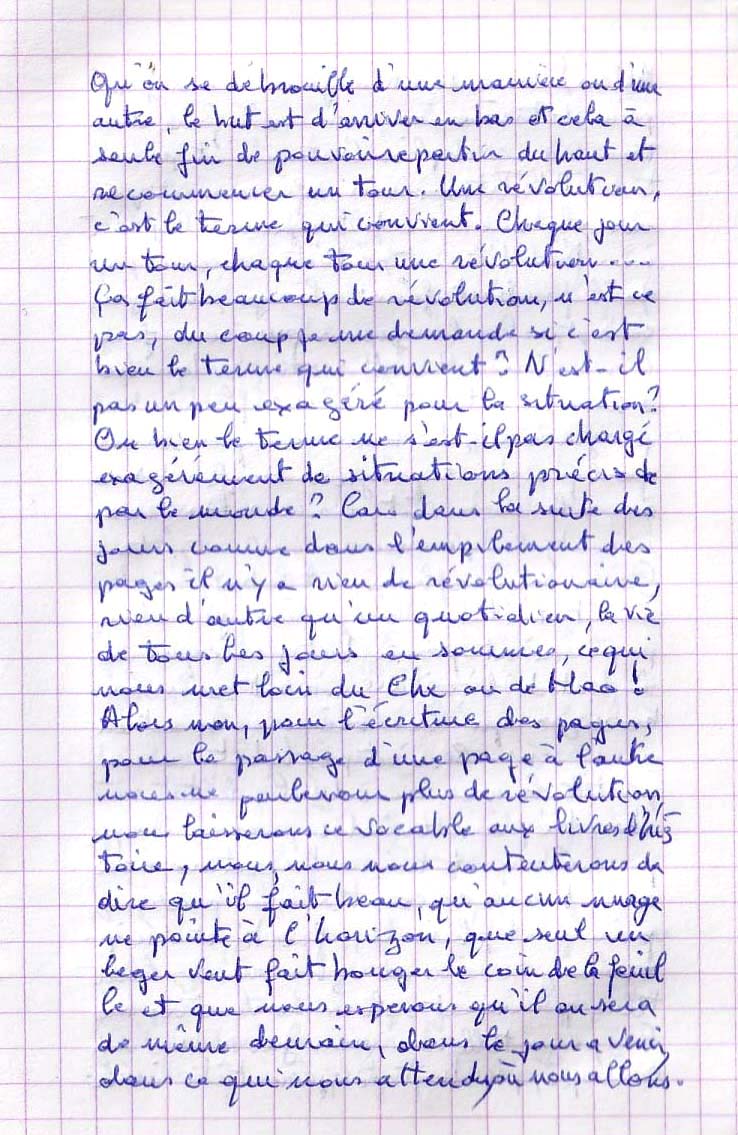 Qu'on se débrouille d'une manière ou d'une
autre, le but est d'arriver en bas et cela à
seule fin de pouvoir repartir du haut et
recommencer un tour. Une révolution,
c'est le terme qui convient. Chaque jour
un tour, chaque tour une révolution....
Ça fait beaucoup de révolution, n'est ce
pas, du coup je me demande si c'est
bien le terme qui convient? N'est-il
pas un peu exagéré pour la situation?
Ou bien le terme ne s'est-il pas chargé
exagérément de situations précises de
par le monde? Car dans la suite des
jours comme dans l'empilement des
pages il n'y a rien de révolutionaire,
rien d'autre qu'un quotidien, la vie
de tous les jours en sommes, ce qui
nous met loin du Che ou de Mao!
Alors non, pour l'écriture des pages,
pour le passage d'une page à l'autre
nous ne parlerons plus de révolution,
nous laisserons ce vocable aux livres d'his
toire, nous, nous nous contenterons de
dire qu'il fait beau, qu'aucun nuage
ne pointe à l'horizon, que seul un
leger vent fait bouger le coin de la feuil
le et que nous esperons qu'il en sera
de même demain, dans le jour a venir,
dans ce qui nous attend, où nous allons.